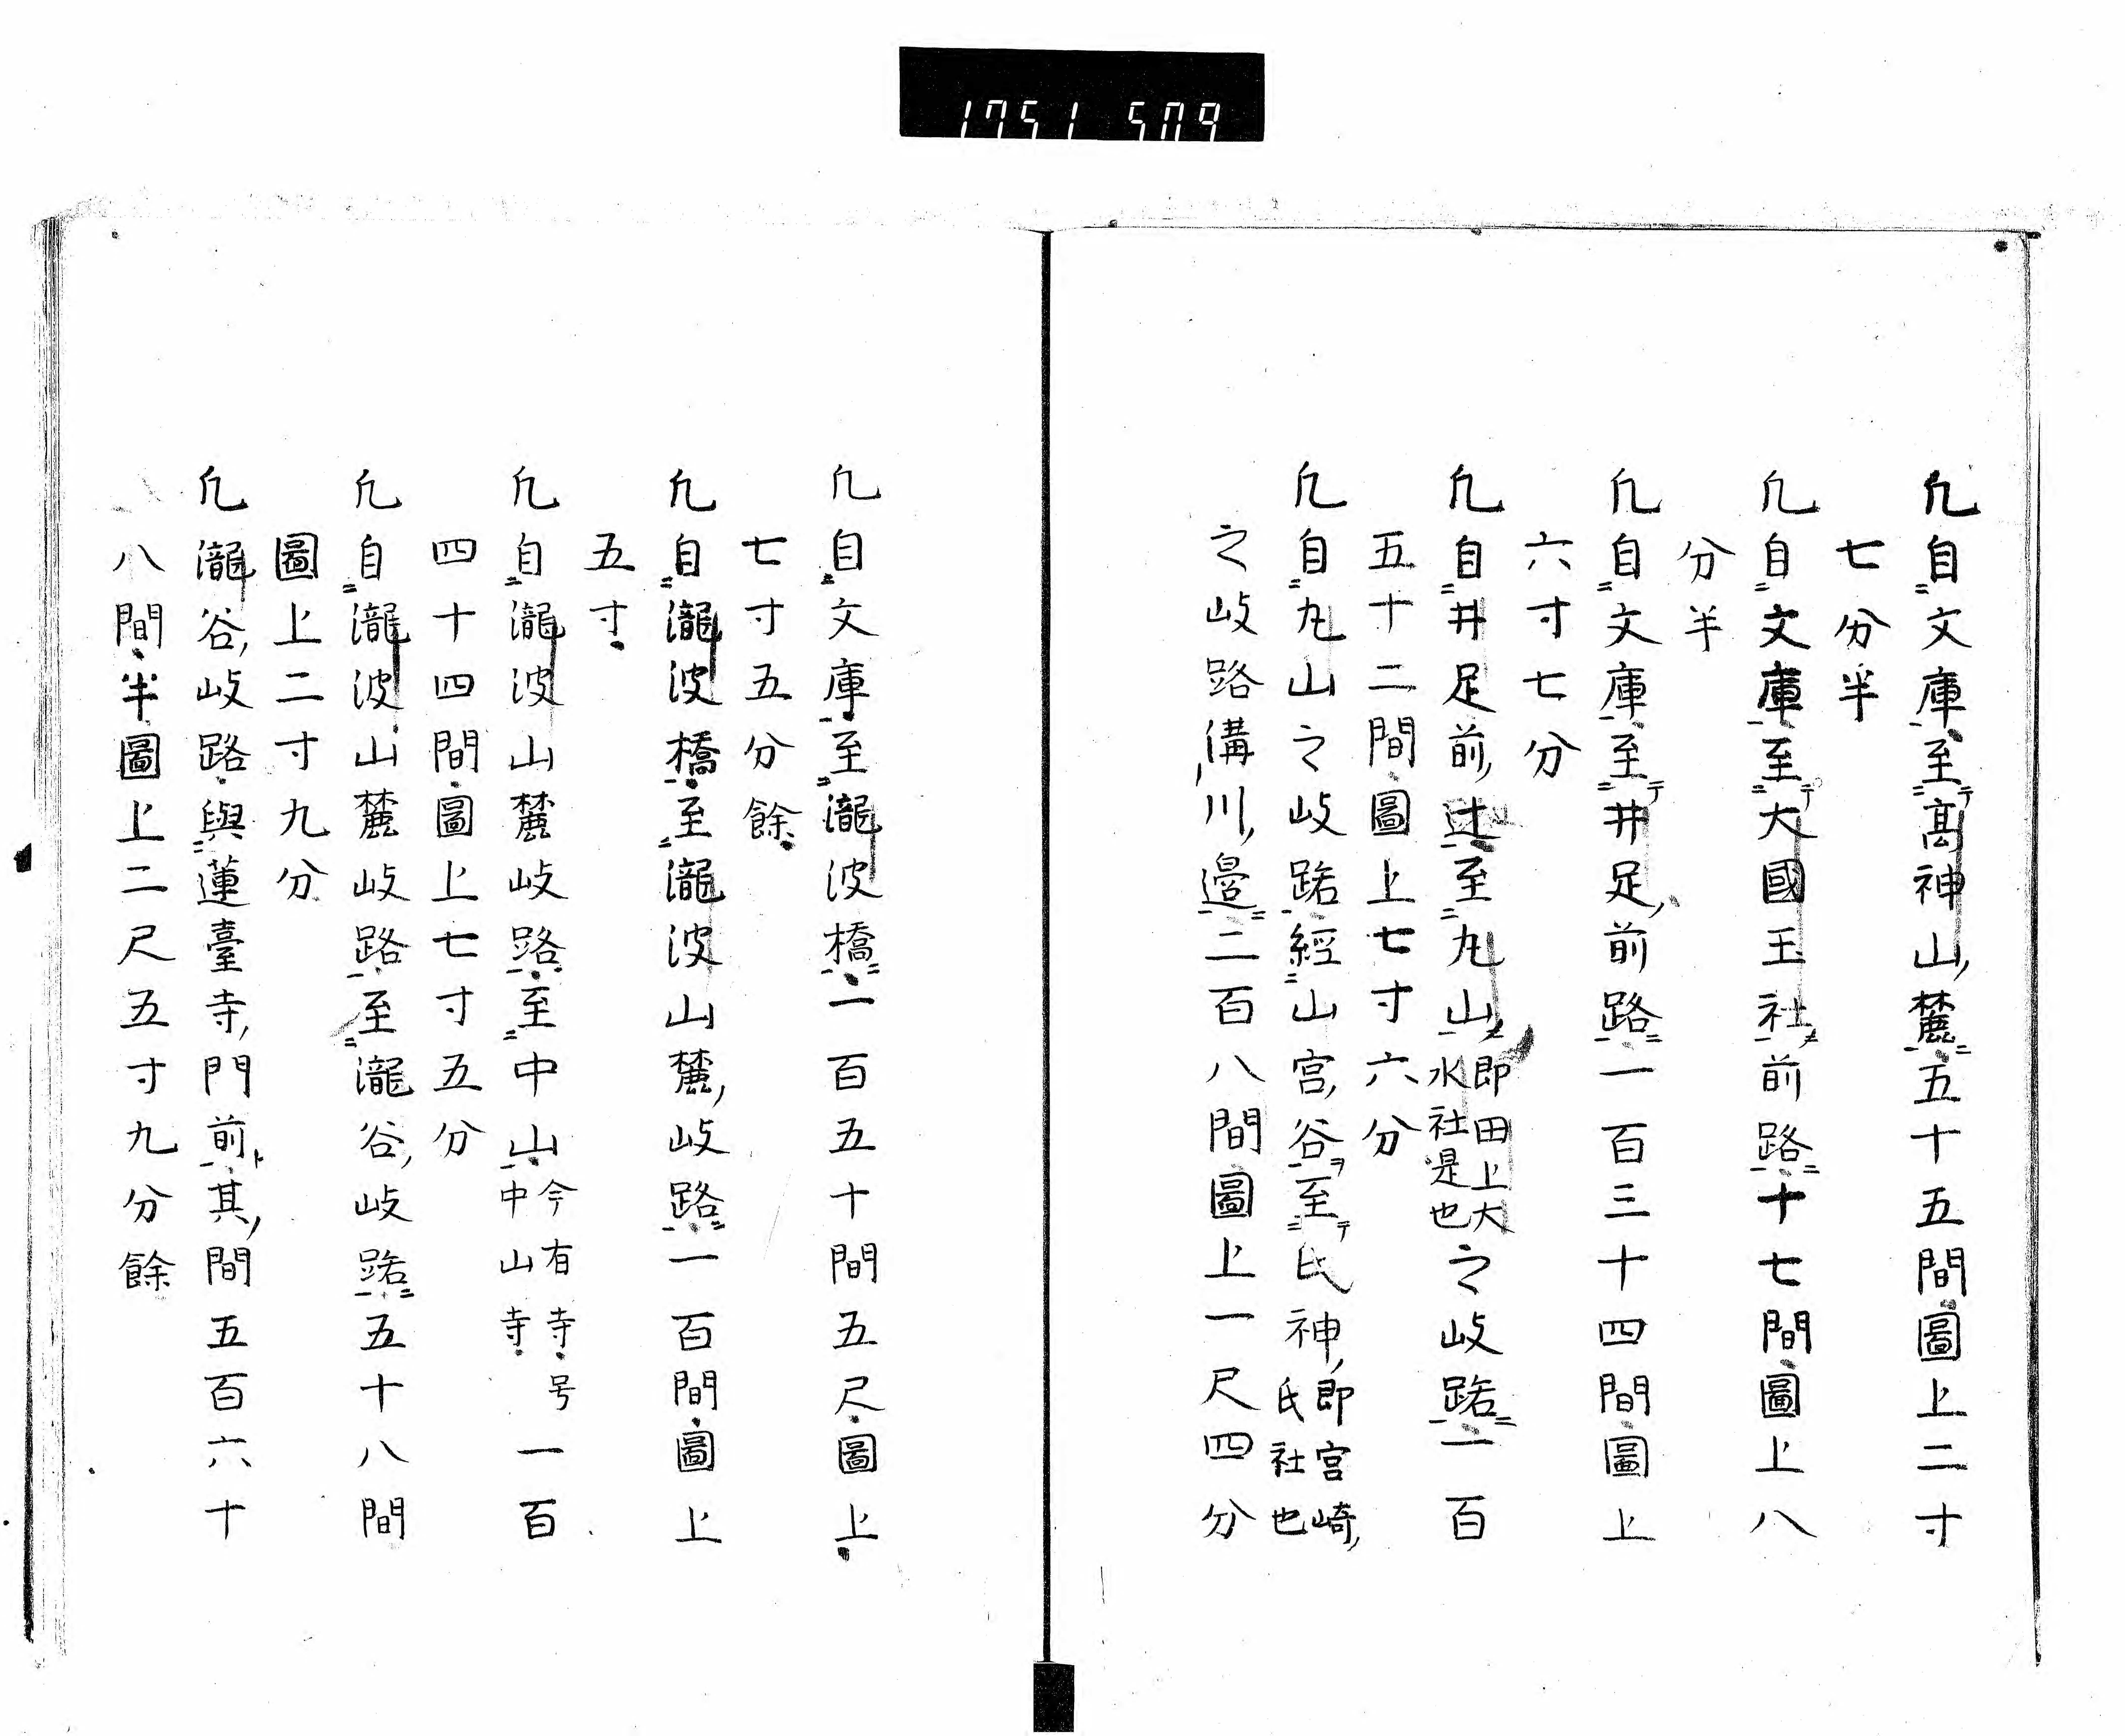 1751 509
凢自文庫至髙神山麓五十五間圖上二寸
七分半
凢自文庫至大國玉社前路十七間圖上八
分半
凢自文庫至井足前路一百三十四間圖上
六寸七分
凢自井足前辻至丸山即田上大水社是也之岐路一百
五十二間圖上七寸六分
凢自丸山之岐路經山宮谷至氏神即宮崎氏社也
之岐路溝川邉二百八間圖上一尺四分
凢自文庫至瀧波橋一百五十間五尺圖上
七寸五分餘
凢自瀧波橋至瀧波山麓岐路一百間圖上
五寸
凢自瀧波山麓岐路至中山今有寺号中山寺一百
四十四間圖上七寸五分
凢自瀧波山麓岐路至瀧谷岐路五十八間
圖上二寸九分
凢瀧谷岐路與蓮臺寺門前其間五百六十
八間半圖上二尺五寸九分餘